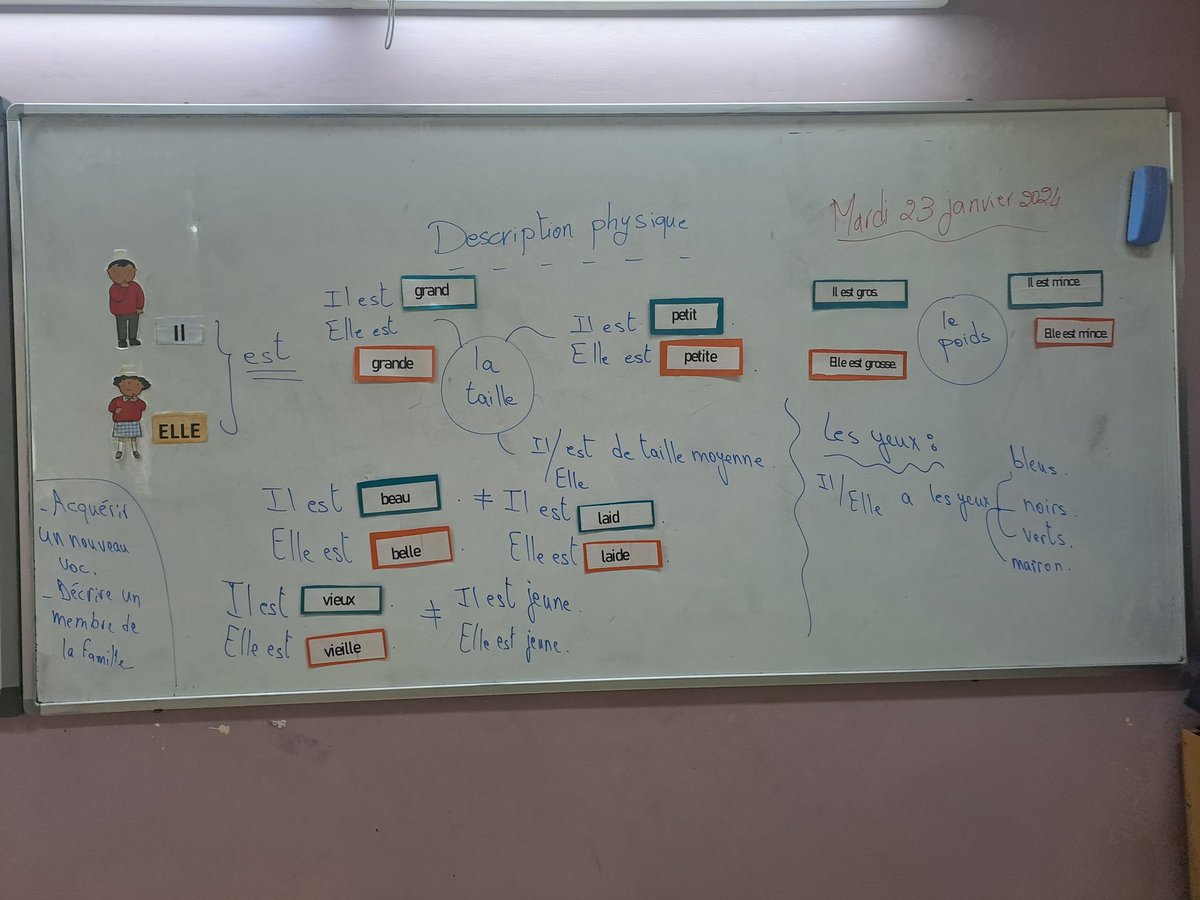 Mardi 23 janvier 2024
Description physique
Il
ELLE
est
Il est grand
Elle est
grande
la
taille
Il est petit.
Elle est petite.
Il/est de taille moyenne.
Elle
Il est gros.
Elle est grosse.
le
poids
Il est mince.
Elle est mince.
Il est beau. ≠ Il est laid
Elle est belle. Elle est laide.
Il est vieux. ≠ Il est jeune.
Elle est vieille. Elle est jeune.
Les yeux :
Il/Elle a les yeux
bleus.
noirs.
verts.
marron.
- Acquérir
un nouveau
voc.
- Décrire un
membre de
la famille